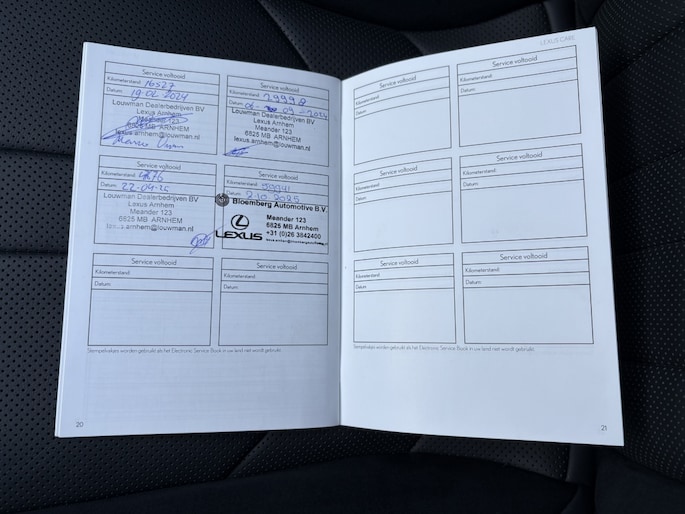 LEXUS CARE
Service voltooid
Kilometerstand: 16527
Datum: 19-02-2024
Louwman Dealerbedrijven BV
Lexus Arnhem
6825 MB ARNHEM
lexus.arnhem@louwman.nl
Service voltooid
Kilometerstand: 29998
Datum: 06- 09-2024
Louwman Dealerbedrijven BV
Lexus Arnhem
Meander 123
6825 MB ARNHEM
lexus.arnhem@louwman.nl
Service voltooid
Kilometerstand:
Datum: 22-04-25
Louwman Dealerbedrijven BV
Lexus Arnhem
Meander 123
6825 MB ARNHEM
lexus.arnhem@louwman.nl
Service voltooid
Kilometerstand:
Datum: 2-10-2025
Bloemberg Automotive B.V.
LEXUS
Meander 123
6825 MB ARNHEM
+31 (0)26 3842400
Service voltooid
Kilometerstand:
Datum:
Service voltooid
Kilometerstand:
Datum:
Stempelvakjes worden gebruikt als het Electronic Service Book in uw land niet wordt gebruikt.
20
Service voltooid
Kilometerstand:
Datum:
Service voltooid
Kilometerstand:
Datum:
Service voltooid
Kilometerstand:
Datum:
Service voltooid
Kilometerstand:
Datum:
Service voltooid
Kilometerstand:
Datum
Service voltooid
Kilometerstand:
Datum:
Stempelvakjes worden gebruikt als het Electronic Service Book in uw land niet wordt gebruikt.
21